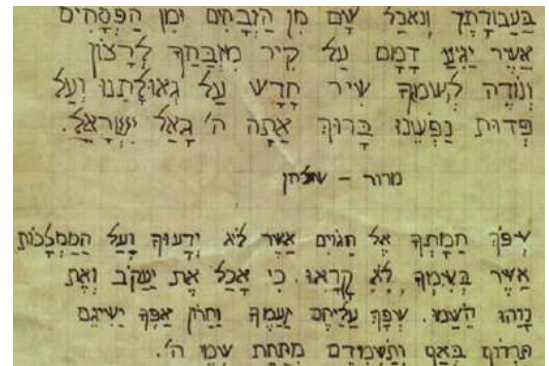 בַּעֲבוֹדָתֶךָ וְנֹאכַל שָׁם מִן הַזְּבָחִים וּמִן הַפְּסָחִים
אֲשֶׁר יַגִּיעַ דָּמָם עַל קִיר מִזְבַּחֲךָ לְרָצוֹן
וְנוֹדֶה לְשִׁמְךָ שִׁיר חָדָשׁ עַל גְּאוּלָתֵנוּ וְעַל
פְּדוּת נַפְשֵׁנוּ בָּרוּךְ אַתָּה ה' גָּאַל יִשְׂרָאֵל.
מרור – שולחן
שְׁפֹךְ חֲמָתְךָ אֶל הַגּוֹיִם אֲשֶׁר לֹא יְדָעוּךָ וְעַל הַמַּמְלָכוֹת
אֲשֶׁר בְּשִׁמְךָ לֹא קָרָאוּ. כִּי אָכַל אֶת יַעֲקֹב וְאֶת
נָוֵהוּ הֵשַׁמּוּ. שְׁפָךְ עֲלֵיהֶם זַעְמֶךָ וַחֲרוֹן אַפְּךָ יַשִּׂיגֵם
תִּרְדּוֹף בְּאַף וְתַשְׁמִידֵם מִתַּחַת שְׁמֵי ה'.